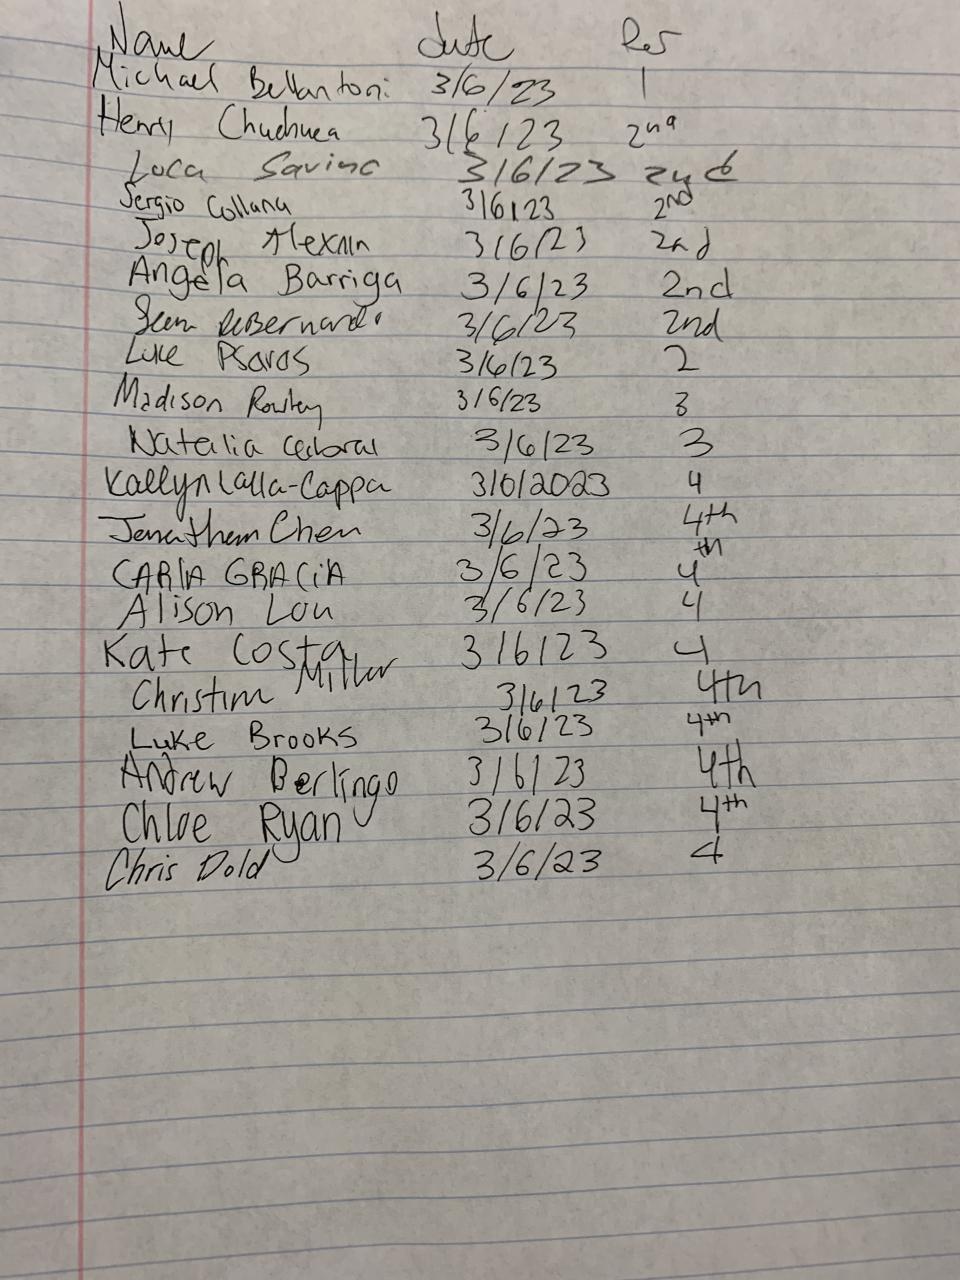 Name date Per
Michael Bellantoni 3/6/23 1
Henry Chuchuca 3/6/23 2nd
Luca Savino 3/6/23 2nd
Sergio Collana 3/6/23 2nd
Joseph 3/6/23 2nd
Angela Barriga 3/6/23 2nd
Sean DeBernardi 3/6/23 2nd
Luke Psaros 3/6/23 2
Madison Rowley 3/6/23 3
Natalia 3/6/23 3
Kaelyn Lalla-Cappa 3/6/2023 4
Jonathan Chen 3/6/23 4th
CARlA GRACiA 3/6/23 4th
Alison Lou 3/6/23 4
Kate Costa 3/6/23 4
Christina Miller 3/6/23 4th
Luke Brooks 3/6/23 4th
Andrew Berlingo 3/6/23 4th
Chloe Ryan 3/6/23 4th
Chris Dold 3/6/23 4